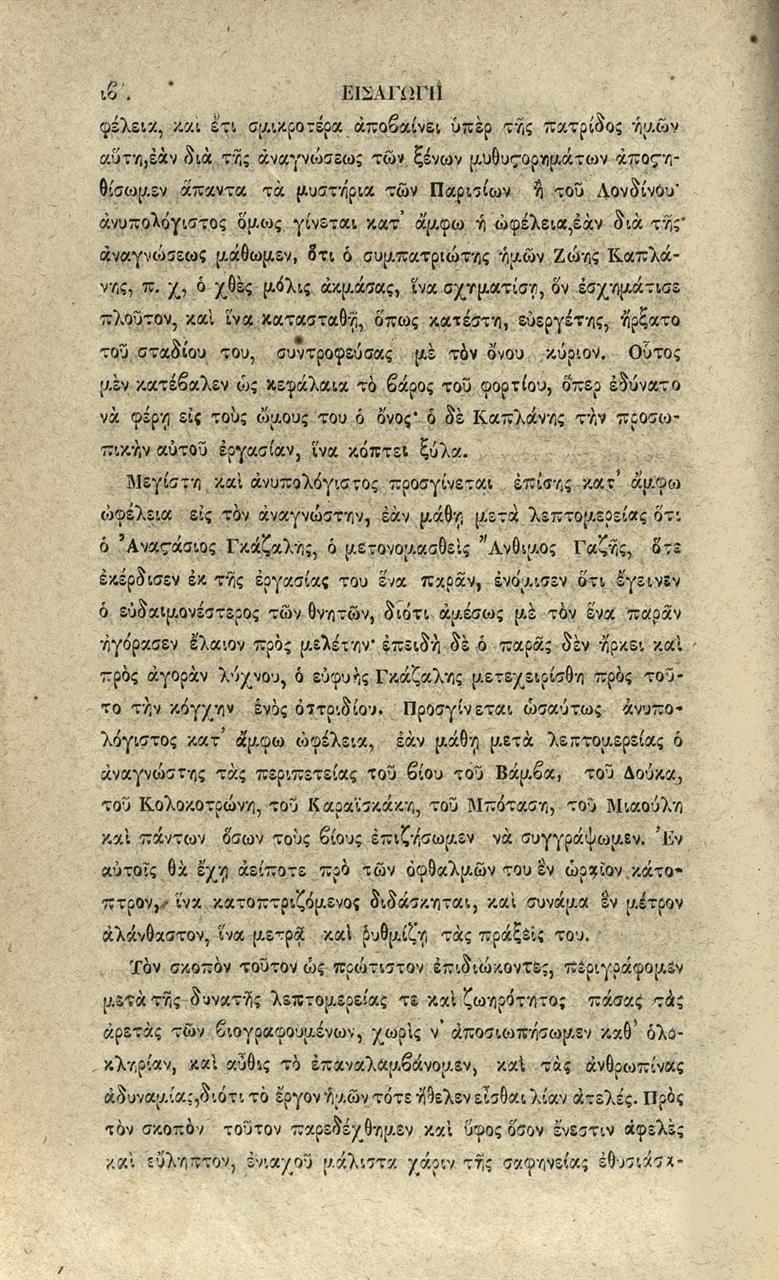 ιβ΄. ΕΙΣΑΓΩΓΗ
φέλεια, καὶ ἔτι σμικροτέρα ἀποβαίνει ὑπὲρ τῆς πατρίδος ἡμῶν
αὕτη, ἐὰν διὰ τῆς ἀναγνώσεως τῶν ξένων μυθυϛορημάτων ἀποϛη-
θίσωμεν ἅπαντα τὰ μυστήρια τῶν Παρισίων ἢ τοῦ Λονδίνου·
ἀνυπολόγιστος ὅμως γίνεται κατ' ἄμφω ἡ ὠφέλεια, ἐὰν διὰ τῆς
ἀναγνώσεως μάθωμεν, ὅτι ὁ συμπατριώτης ἡμῶν Ζώης Καπλά-
νης, π. χ, ὁ χθὲς μόλις ἀκμάσας, ἵνα σχηματίσῃ, ὃν ἐσχημάτισε
πλοῦτον, καὶ ἵνα κατασταθῇ, ὅπως κατέστη, εὐεργέτης, ἤρξατο
τοῦ σταδίου του, συντροφεύσας μὲ τὸν ὄνου κύριον. Οὗτος
μὲν κατέβαλεν ὡς κεφάλαια τὸ βάρος τοῦ φορτίου, ὅπερ ἐδύνατο
νὰ φέρῃ εἰς τοὺς ὤμους του ὁ ὄνος· ὁ δὲ Καπλάνης τὴν προσω-
πικὴν αὑτοῦ ἐργασίαν, ἵνα κόπτει ξύλα.
Μεγίστη καὶ ἀνυπολόγιστος προσγίνεται ἐπίσης κατ' ἄμφω
ὠφέλεια εἰς τὸν ἀναγνώστην, ἐὰν μάθῃ μετὰ λεπτομερείας ὅτι
ὁ Ἀναϛάσιος Γκάζαλης, ὁ μετονομασθεὶς Ἄνθιμος Γαζῆς, ὅτε
ἐκέρδισεν ἐκ τῆς ἐργασίας του ἕνα παρᾶν, ἐνόμισεν ὅτι ἔγεινεν
ὁ εὐδαιμονέστερος τῶν θνητῶν, διότι ἀμέσως μὲ τὸν ἕνα παρᾶν
ἠγόρασεν ἔλαιον πρὸς μελέτην· ἐπειδὴ δὲ ὁ παρᾶς δὲν ἤρκει καὶ
πρὸς ἀγορὰν λύχνου, ὁ εὐφυὴς Γκάζαλης μετεχειρίσθη πρὸς τοῦ-
το τὴν κόγχην ἑνὸς ὀστριδίου. Προσγίνεται ὡσαύτως ἀνυπο-
λόγιστος κατ' ἄμφω ὠφέλεια, ἐὰν μάθῃ μετὰ λεπτομερείας ὁ
ἀναγνώστης τὰς περιπετείας τοῦ βίου τοῦ Βάμβα, τοῦ Δούκα,
τοῦ Κολοκοτρώνη, τοῦ Καραϊσκάκη, τοῦ Μπόταση, τοῦ Μιαούλη
καὶ πάντων ὅσων τοὺς βίους ἐπιζήσωμεν νὰ συγγράψωμεν. Ἐν
αὐτοῖς θὰ ἔχῃ ἀείποτε πρὸ τῶν ὀφθαλμῶν του ἓν ὡραῖον κάτο-
πτρον, ἵνα κατοπτριζόμενος διδάσκηται, καὶ συνάμα ἓν μέτρον
ἀλάνθαστον, ἵνα μετρᾷ καὶ ῥυθμίζῃ τὰς πράξεις του.
Τὸν σκοπὸν τοῦτον ὡς πρώτιστον ἐπιδιώκοντες, περιγράφομεν
μετὰ τῆς δυνατῆς λεπτομερείας τε καὶ ζωηρότητος πάσας τὰς
ἀρετὰς τῶν βιογραφουμένων, χωρὶς ν' ἀποσιωπήσωμεν καθ' ὁλο-
κληρίαν, καὶ αὖθις τὸ ἐπαναλαμβάνομεν, καὶ τὰς ἀνθρωπίνας
ἀδυναμίας, διότι τὸ ἔργον ἡμῶν τότε ἤθελεν εἶσθαι λίαν ἀτελές. Πρὸς
τὸν σκοπὸν τοῦτον παρεδέχθημεν καὶ ὕφος ὅσον ἔνεστιν ἀφελὲς
καὶ εὔληπτον, ἐνιαχοῦ μάλιστα χάριν τῆς σαφηνείας ἐθυσιάσα-